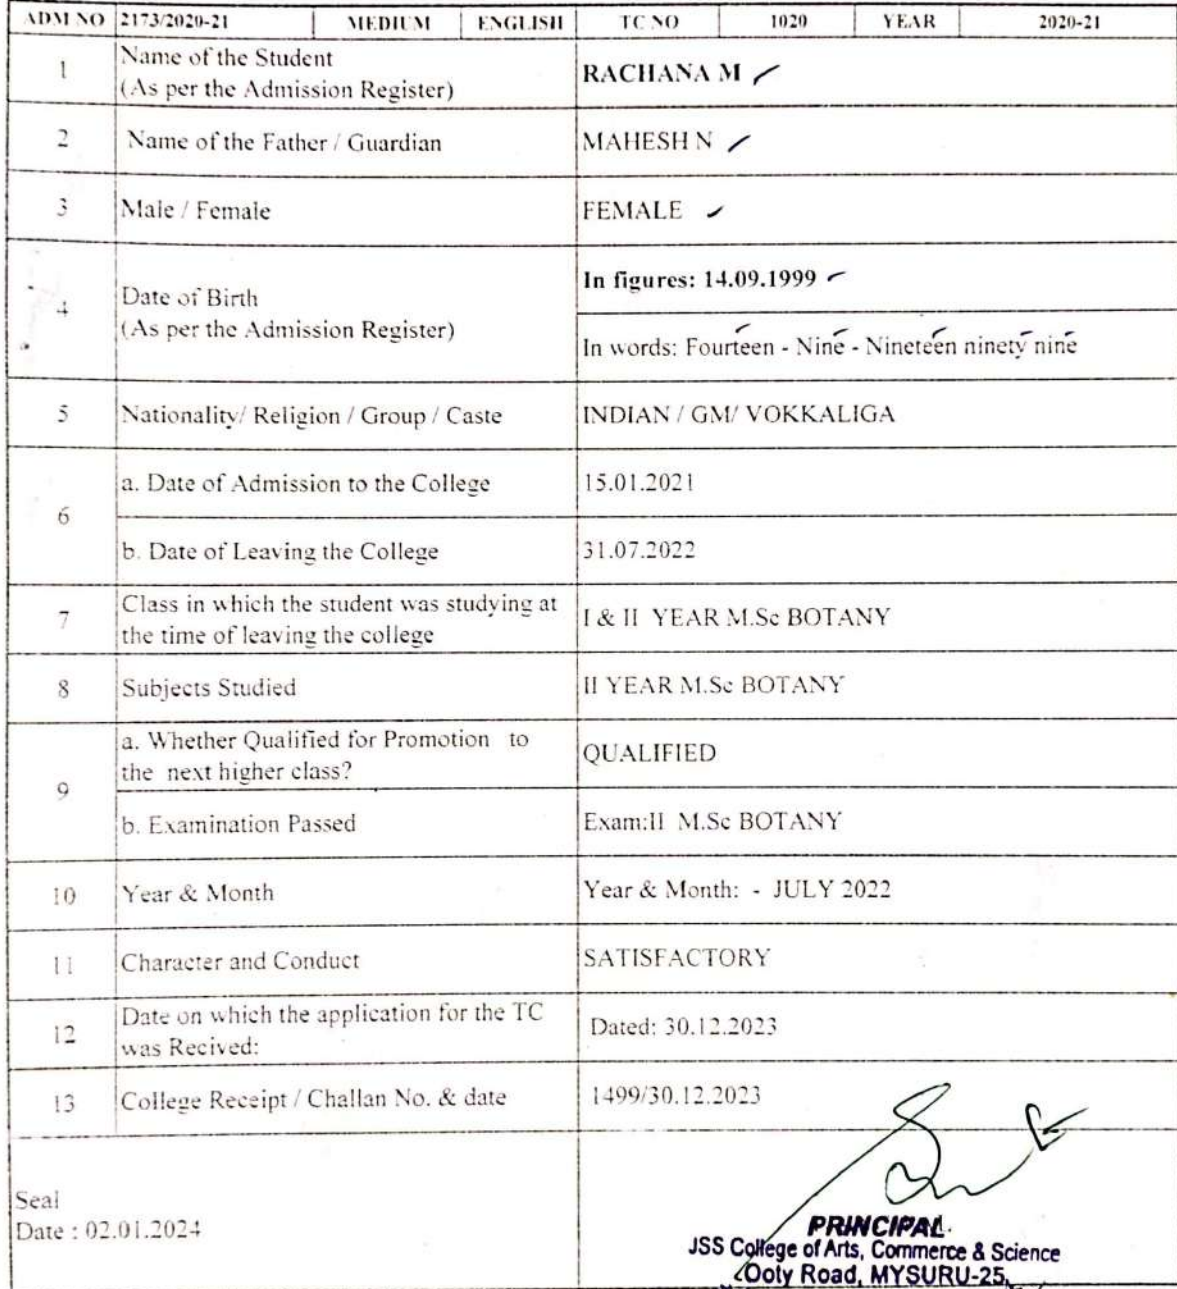 ADM NO 2173/2020-21 MEDIUM ENGLISH TC NO 1020 YEAR 2020-21
1 Name of the Student
(As per the Admission Register) RACHANA M
2 Name of the Father / Guardian MAHESH N
3 Male / Female FEMALE
4 Date of Birth
(As per the Admission Register)
In figures: 14.09.1999
In words: Fourteen - Nine - Nineteen ninety nine
5 Nationality/ Religion / Group / Caste INDIAN / GM/ VOKKALIGA
6 a. Date of Admission to the College 15.01.2021
b. Date of Leaving the College 31.07.2022
7 Class in which the student was studying at
the time of leaving the college I & II YEAR M.Sc BOTANY
8 Subjects Studied II YEAR M.Sc BOTANY
9 a. Whether Qualified for Promotion to
the next higher class? QUALIFIED
b. Examination Passed Exam:II M.Sc BOTANY
10 Year & Month Year & Month: - JULY 2022
11 Character and Conduct SATISFACTORY
12 Date on which the application for the TC
was Recived: Dated: 30.12.2023
13 College Receipt / Challan No. & date 1499/30.12.2023
Seal
Date : 02.01.2024
PRINCIPAL
JSS College of Arts, Commerce & Science
Ooty Road, MYSURU-25.